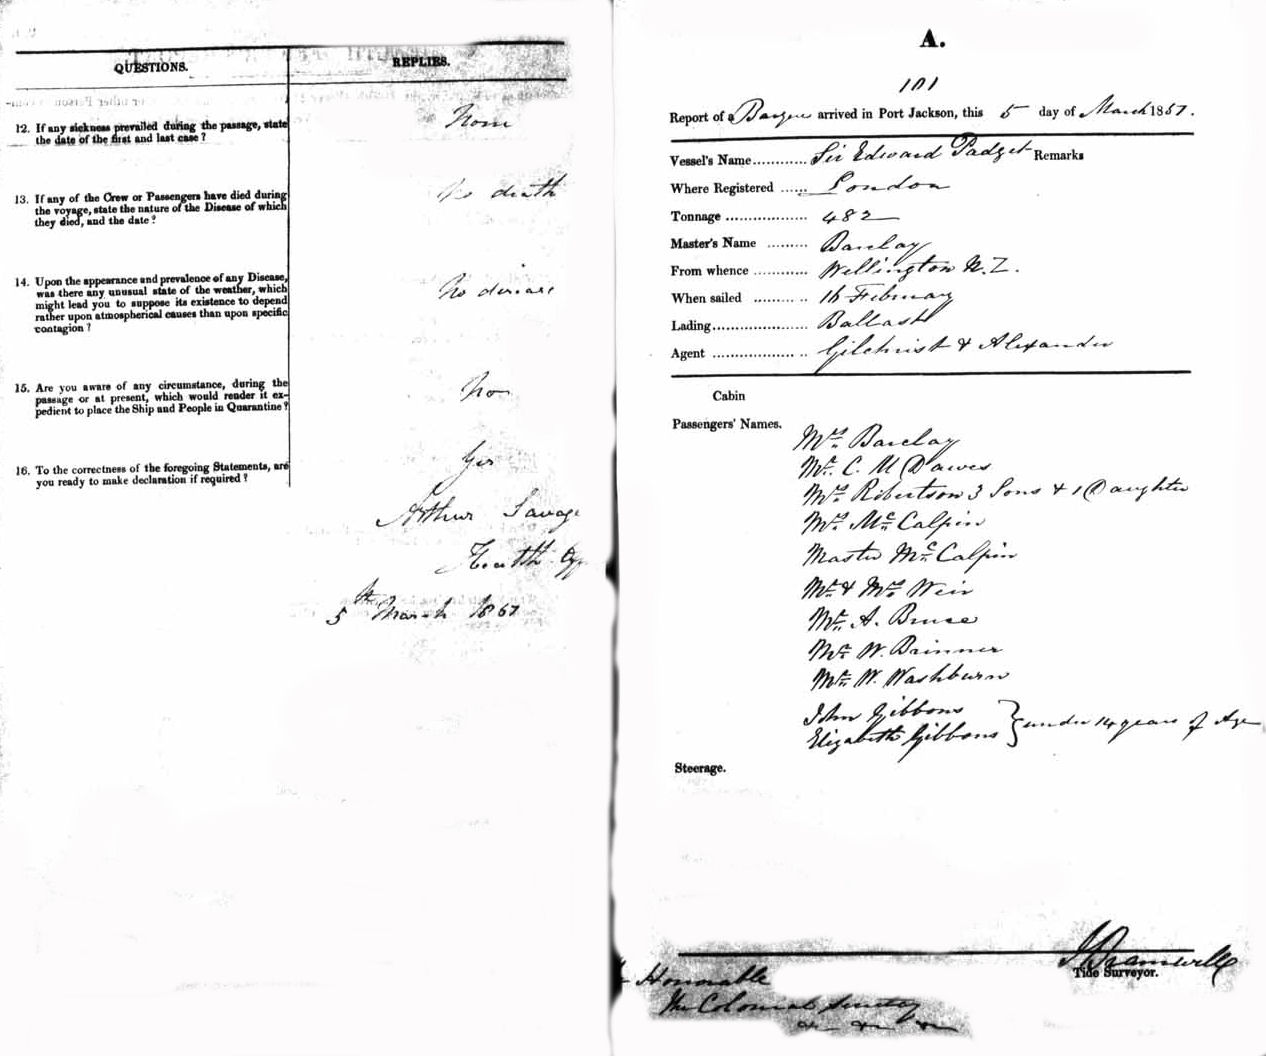 QUESTIONS.
REPLIES.
12. If any sickness prevailed during the passage, state
the date of the first and last case ?
None
13. If any of the Crew or Passengers have died during
the voyage, state the nature of the Disease of which
they died, and the date ?
No death
14. Upon the appearance and prevalence of any Disease,
was there any unusual state of the weather, which
might lead you to suppose its existence to depend
rather upon atmospherical causes than upon specific
contagion ?
No disease
15. Are you aware of any circumstance, during the
passage or at present, which would render it ex-
pedient to place the Ship and People in Quarantine ?
No
16. To the correctness of the foregoing Statements, are
you ready to make declaration if required ?
Yes
Arthur Savage
Health Off
5th March 1857
A.
101
Report of a Barque arrived in Port Jackson, this 5 day of March 1857.
Vessel's Name........... Sir Edward Padget Remarks
Where Registered ...... London
Tonnage .................. 482
Master's Name ......... Barclay
From whence ............ Wellington N.Z.
When sailed ............ 16 February
Lading..................... Ballast
Agent ..................... Gilchrist & Alexander
Cabin
Passengers' Names.
Mrs. Barclay
Mr. C. M Dawes
Mrs. Robertson 3 Sons & 1 Daughter
Mrs. McCalpin
Master McCalpin
Mr. & Mrs. Weir
Mr. A. Bruce
Mr. W.
Mr. W. Washburn
John Gibbons
Elizabeth Gibbons } under 14 years of Age
Steerage.
Tide Surveyor.
Honorable
The Colonial Secretary
&c &c &c